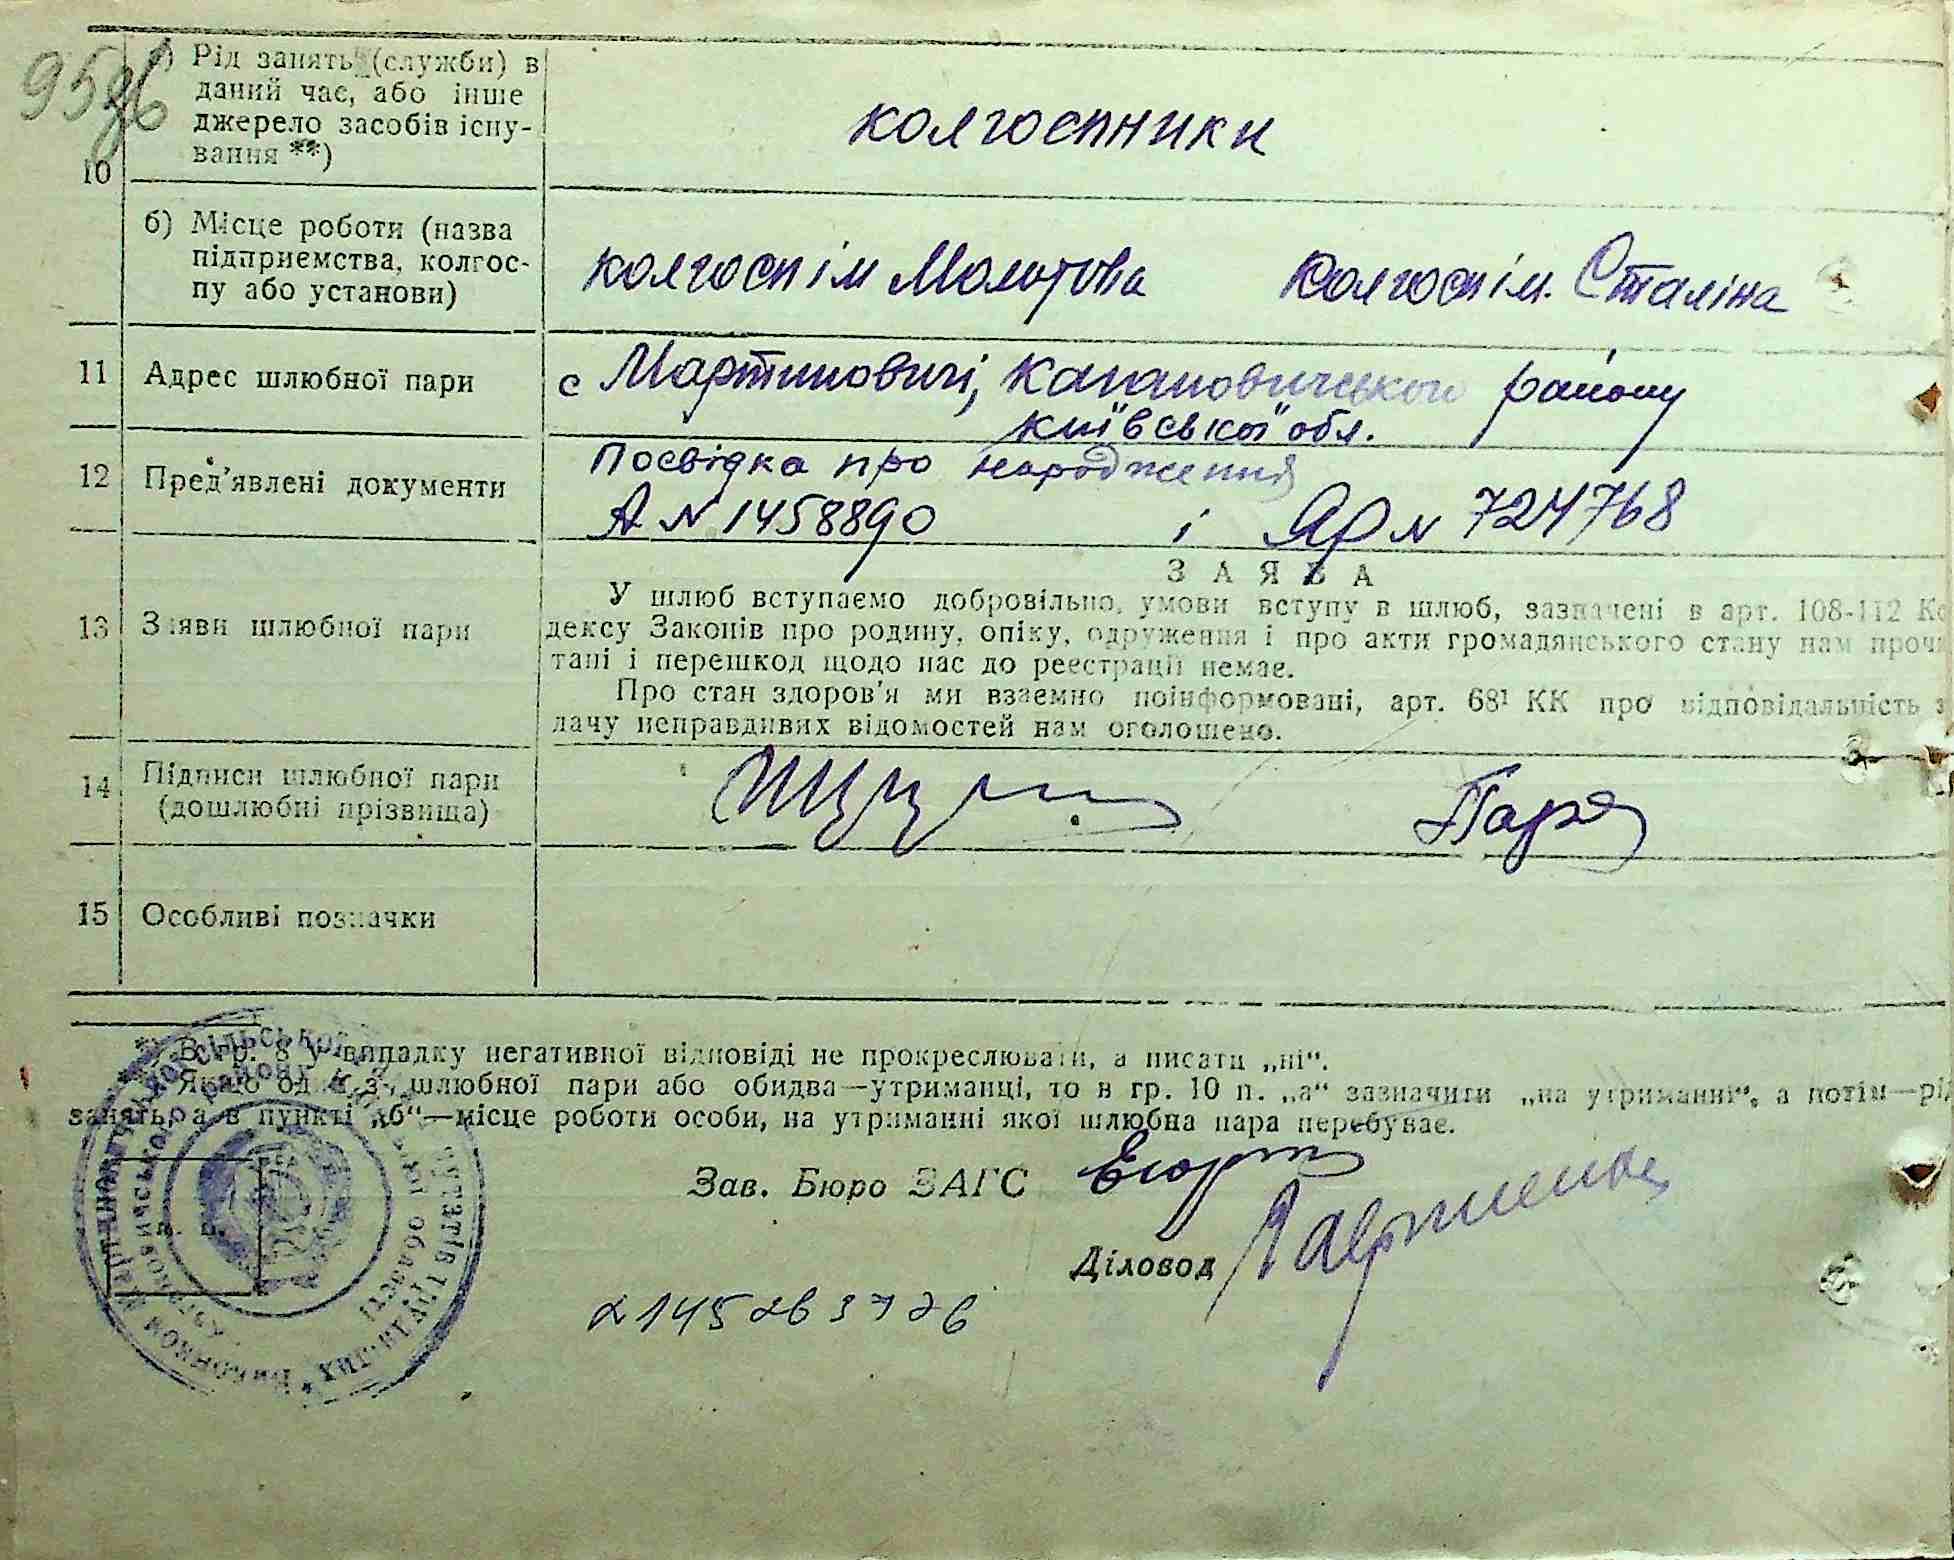 95зв
) Рід занять (служби) в
даний час, або інше
джерело засобів існу-
вання **)
10
колгоспники
б) Місце роботи (назва
підприємства, колгос-
пу або установи)
колгосп ім Молотова колгосп ім. Сталіна
11 Адрес шлюбної пари
с Мартиновичі, Кагановичського району
Київської обл.
12 Пред'явлені документи
Посвідка про народження
А № 1458890 і ЯР № 724768
ЗАЯВА
13 Заяви шлюбної пари
У шлюб вступаємо добровільно, умови вступу в шлюб, зазначені в арт. 108-112 Ко
дексу Законів про родину, опіку, одруження і про акти громадянського стану нам проч
тані і перешкод щодо нас до реєстрації немає.
Про стан здоров'я ми взаємно поінформовані, арт. 68¹ КК про відповідальність з
дачу неправдивих відомостей нам оголошено.
14 Підписи шлюбної пари
(дошлюбні прізвища)
15 Особливі позначки
В гр. 8 у випадку негативної відповіді не прокреслювати, а писати „ні".
Якщо один з шлюбної пари або обидва—утриманці, то в гр. 10 п. „а" зазначити „на утриманні", а потім—рід
занять, а в пункті „б"—місце роботи особи, на утриманні якої шлюбна пара перебуває.
Зав. Бюро ЗАГС
Діловод